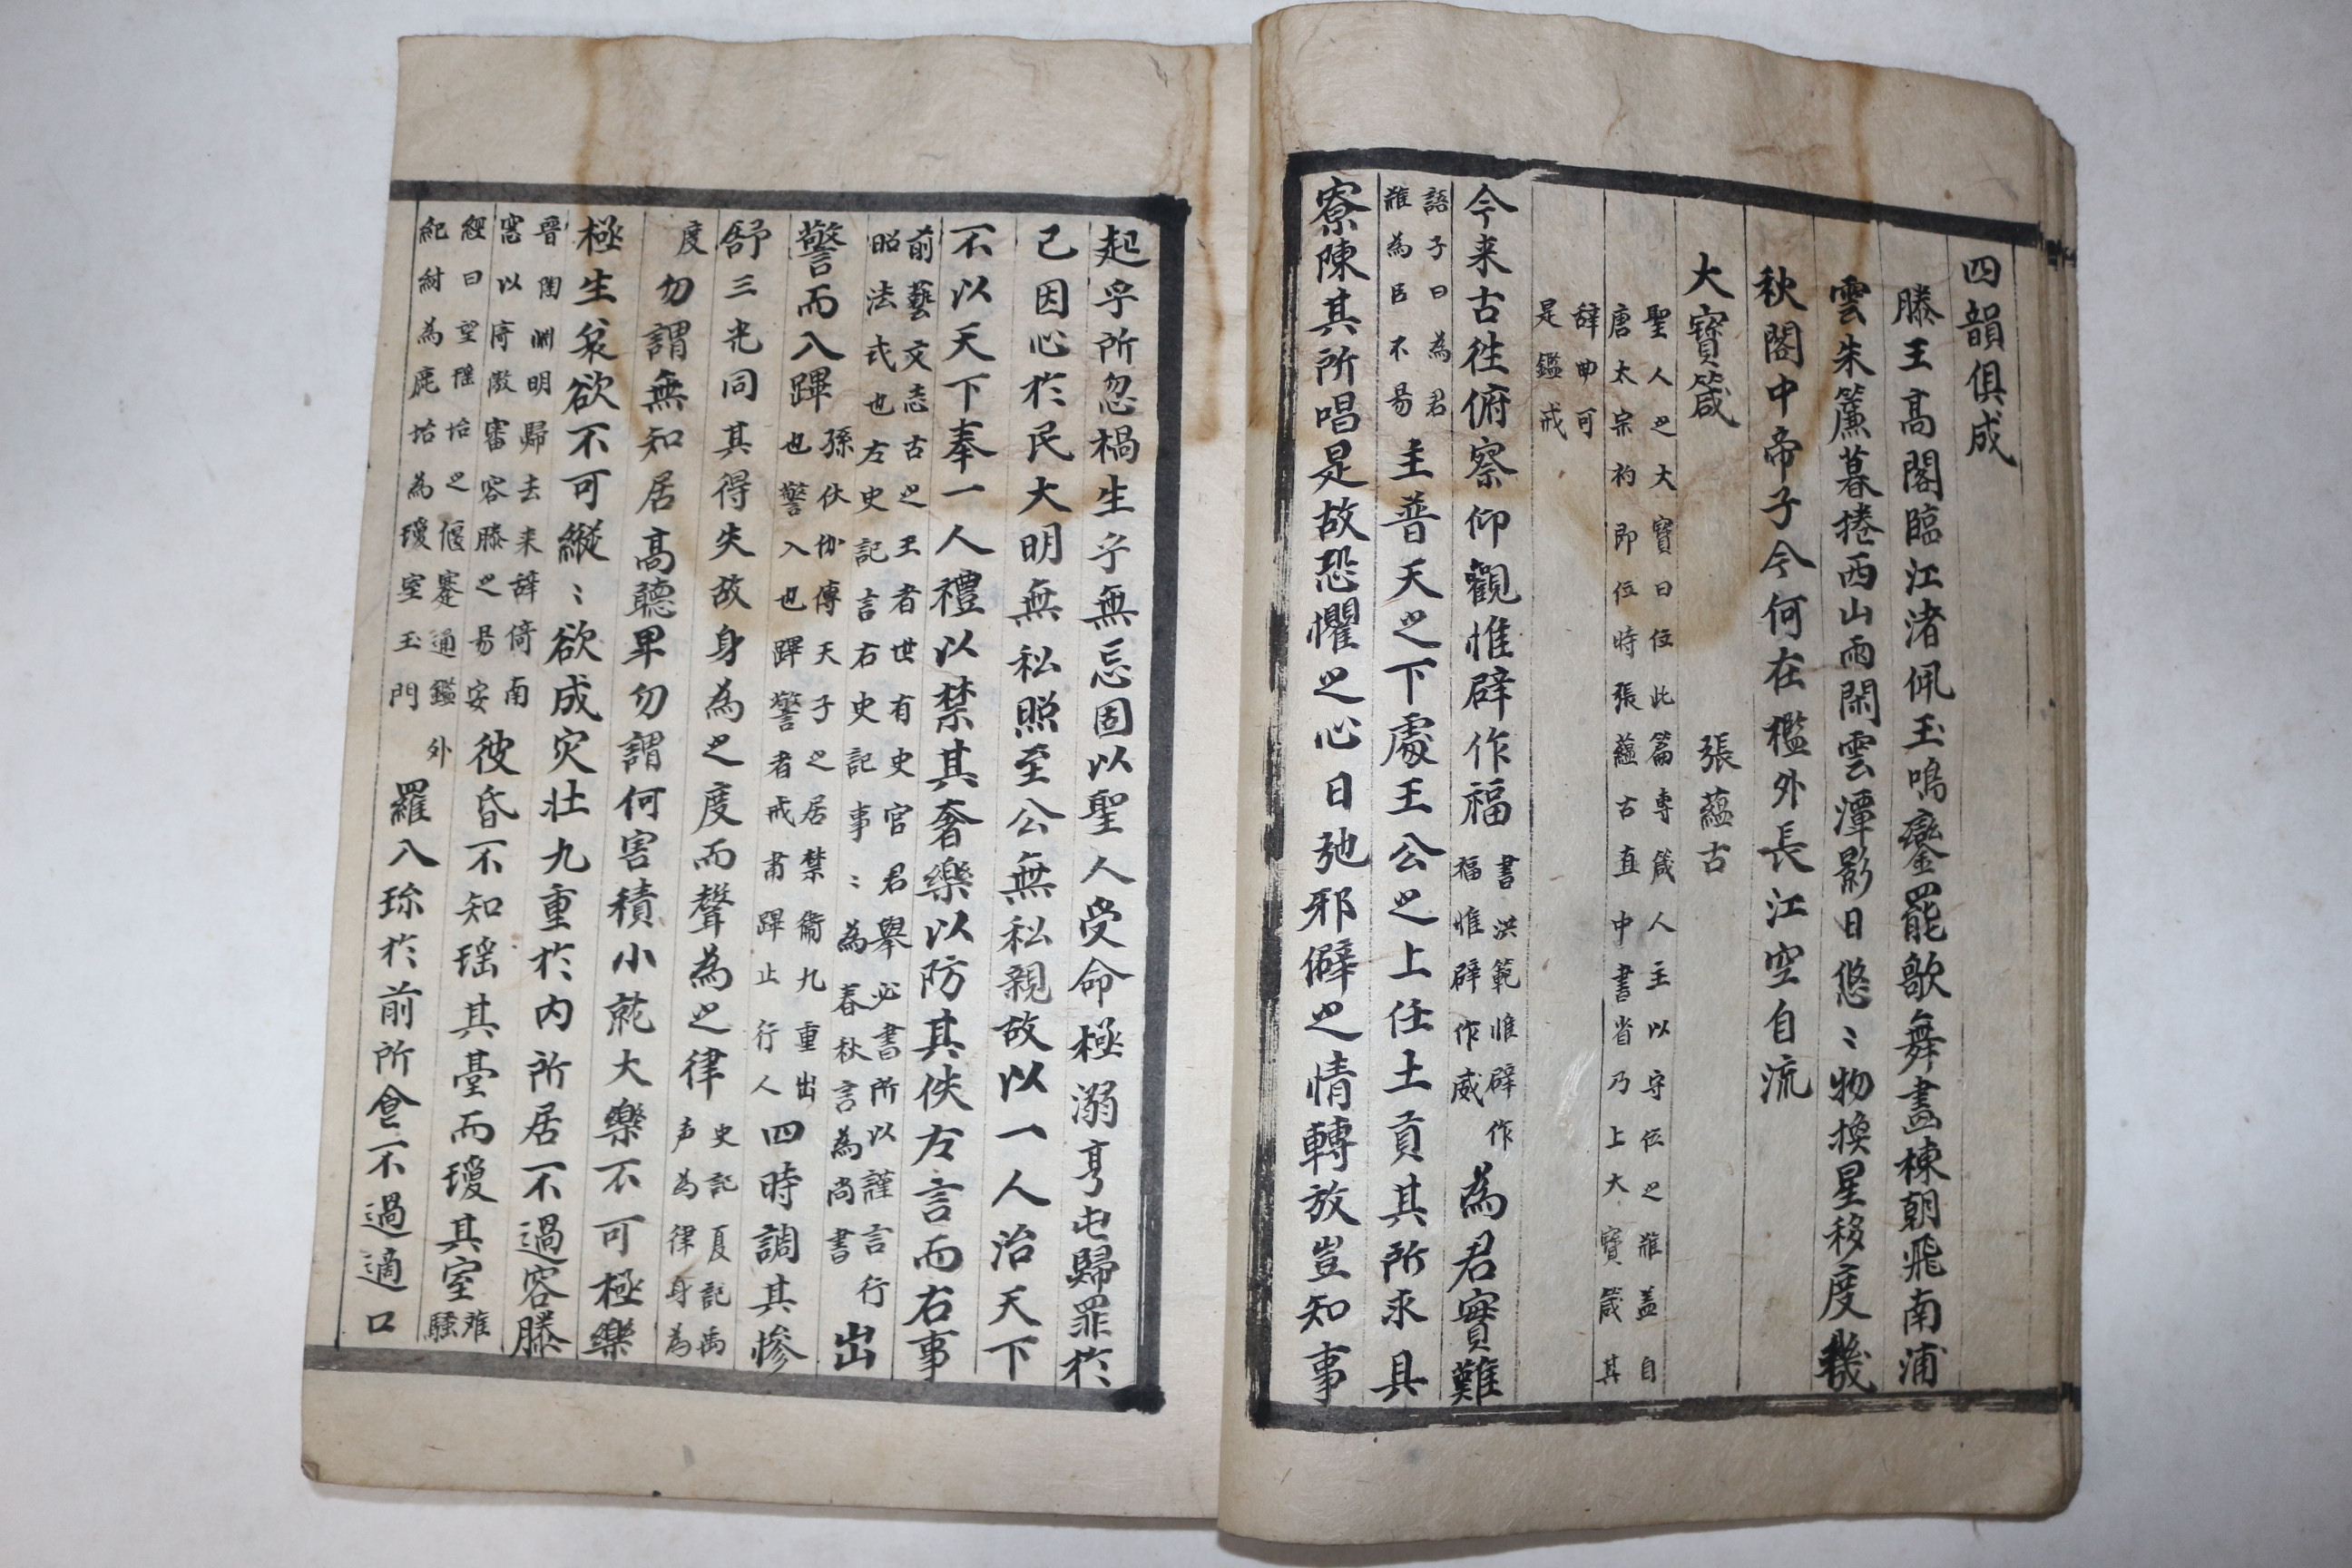 四韻俱成
滕王高閣臨江渚佩玉鳴鑾罷歌舞畵棟朝飛南浦
雲朱簾暮捲西山雨閑雲潭影日悠〻物換星移度幾
秋閣中帝子今何在檻外長江空自流
大寶箴 張蘊古
聖人之大寶曰位此篇專箴人主以守位之难盖自
唐太宗初即位時張蘊古直中書省乃上大寶箴其
辞曲可
是鑑戒
今来古徃俯察仰觀惟辟作福
書洪範惟辟作
福惟辟作威
為君實難
語子曰為君
难為臣不易
主普天之下處王公之上任土貢其所求具
寮陳其所唱是故恐懼之心日弛邪僻之情轉放豈知事
起乎所忽禍生乎無忘固以聖人受命極溺亨屯歸罪於
己因心於民大明無私照至公無私親故以一人治天下
不以天下奉一人禮以禁其奢樂以防其佚左言而右事
前藝文志古之王者世有史官君舉必書所以謹言行
昭法式也左史記言右史記事〻為春秋言為尚書
出
警而入蹕
孫伏伽傳天子之居禁衛九重出
也警入也蹕警者戒肅蹕止行人
四時調其慘
舒三光同其得失故身為之度而聲為之律
史記夏記禹
声為律身為
度
勿謂無知居高聽卑勿謂何害積小就大樂不可極樂
極生哀欲不可縱〻欲成灾壯九重於内所居不過容膝
晉陶淵明歸去来辞倚南
窓以寄傲審容膝之易安
彼昏不知瑶其臺而瓊其室
难騷
經曰望瑶坮之偃蹇通鑑外
紀紂為鹿坮為瓊室玉門
羅八珎於前所食不過適口